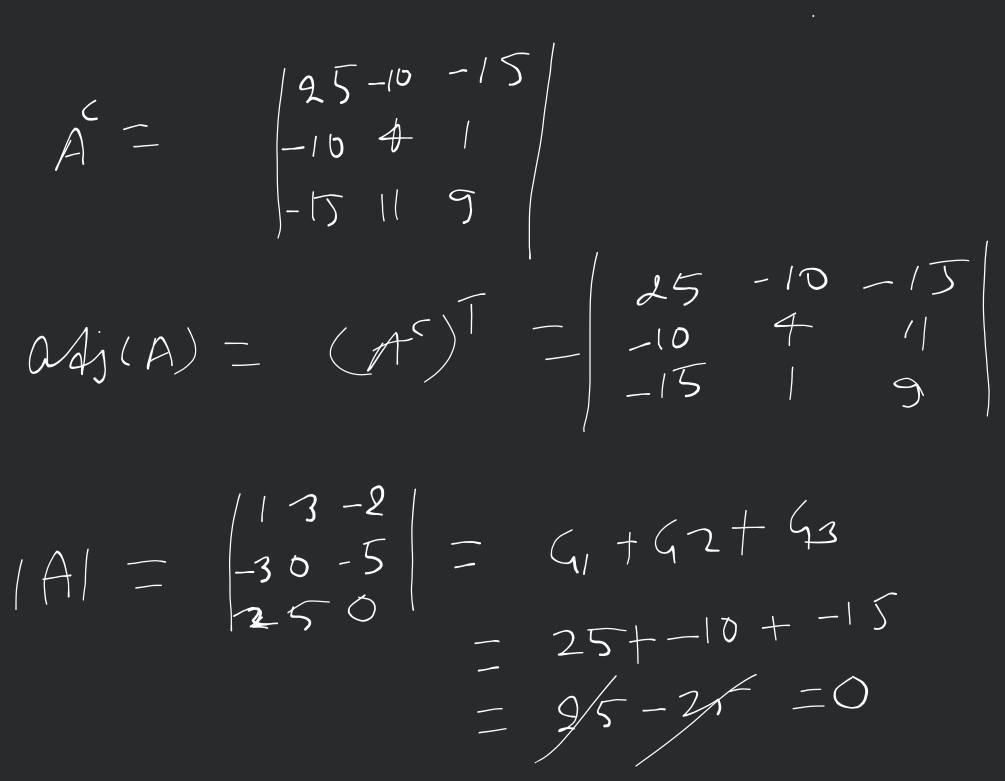 A^c = | 25 -10 -15 |
| -10 4 1 |
| -15 11 9 |
adj(A) = (A^c)^T = | 25 -10 -15 |
| -10 4 11 |
| -15 1 9 |
|A| = | 1 3 -2 | = G1 + G2 + G3
| -3 0 -5 |
| 2 5 0 |
= 25 + -10 + -15
= 25 - 25 = 0